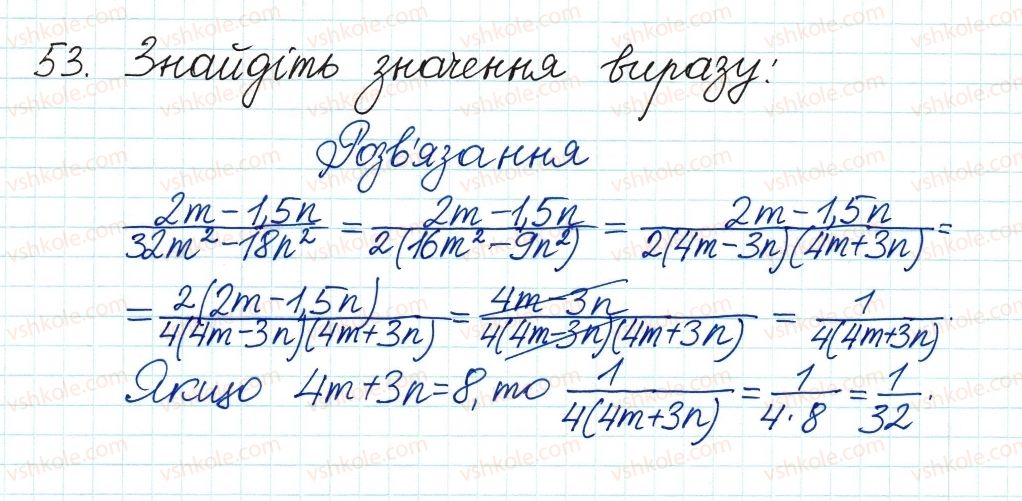 53. Знайдіть значення виразу:
Розв'язання
(2m-1,5n)/(32m²-18n²) = (2m-1,5n)/(2(16m²-9n²)) = (2m-1,5n)/(2(4m-3n)(4m+3n)) =
= 2(2m-1,5n)/(4(4m-3n)(4m+3n)) = (4m-3n)/(4(4m-3n)(4m+3n)) = 1/(4(4m+3n)).
Якщо 4m+3n=8, то 1/(4(4m+3n)) = 1/(4·8) = 1/32.
vshkole.com